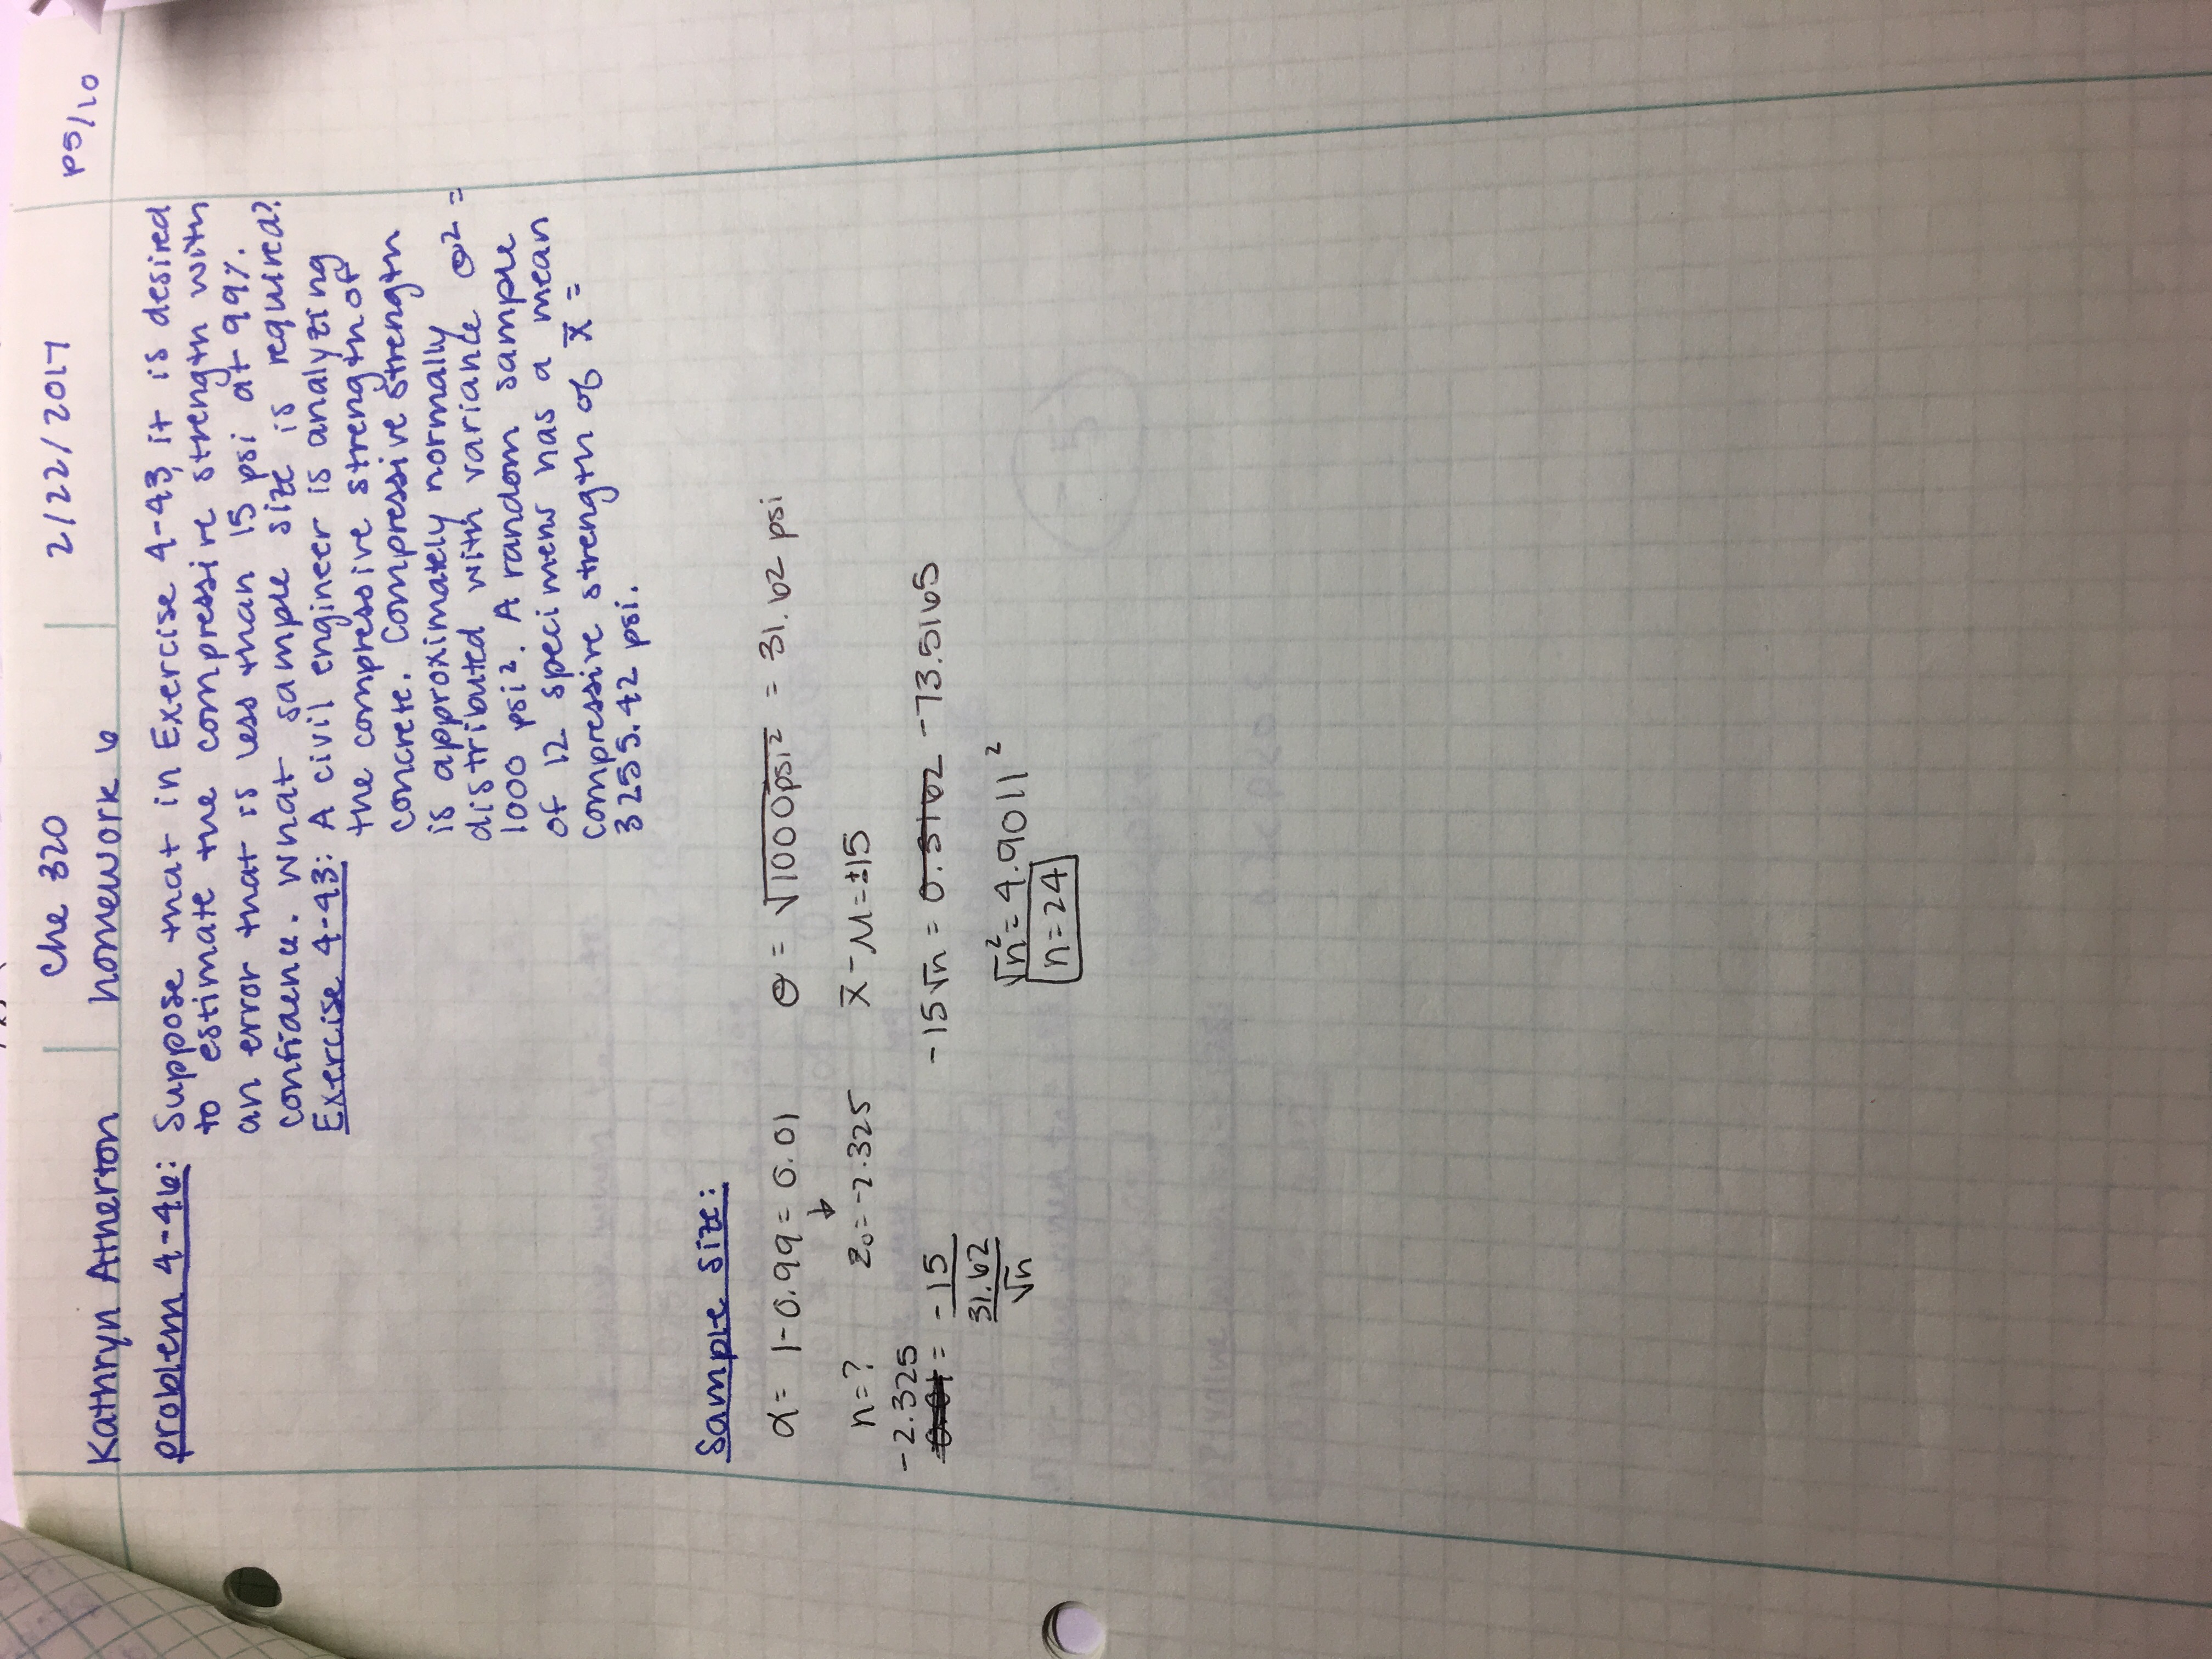 Che 320
2/22/2017
p5/10
Kathryn Atherton
homework 6
problem 4-46: Suppose that in Exercise 4-43, it is desired
to estimate the compressive strength with
an error that is less than 15 psi at 99%.
confidence. What sample size is required?
Exercise 4-43: A civil engineer is analyzing
the compressive strength of
concrete. Compressive strength
is approximately normally
distributed with variance σ² =
1000 psi². A random sample
of 12 specimens has a mean
compressive strength of x̄ =
3255.42 psi.
Sample size:
α = 1-0.99 = 0.01
σ = √1000psi² = 31.62 psi
↓
n=? z₀=-2.325
x̄-μ=±15
-2.325
0.01 = -15
31.62
√n
-15√n = 0.3162 -73.5165
√n² = 4.9011²
n=24